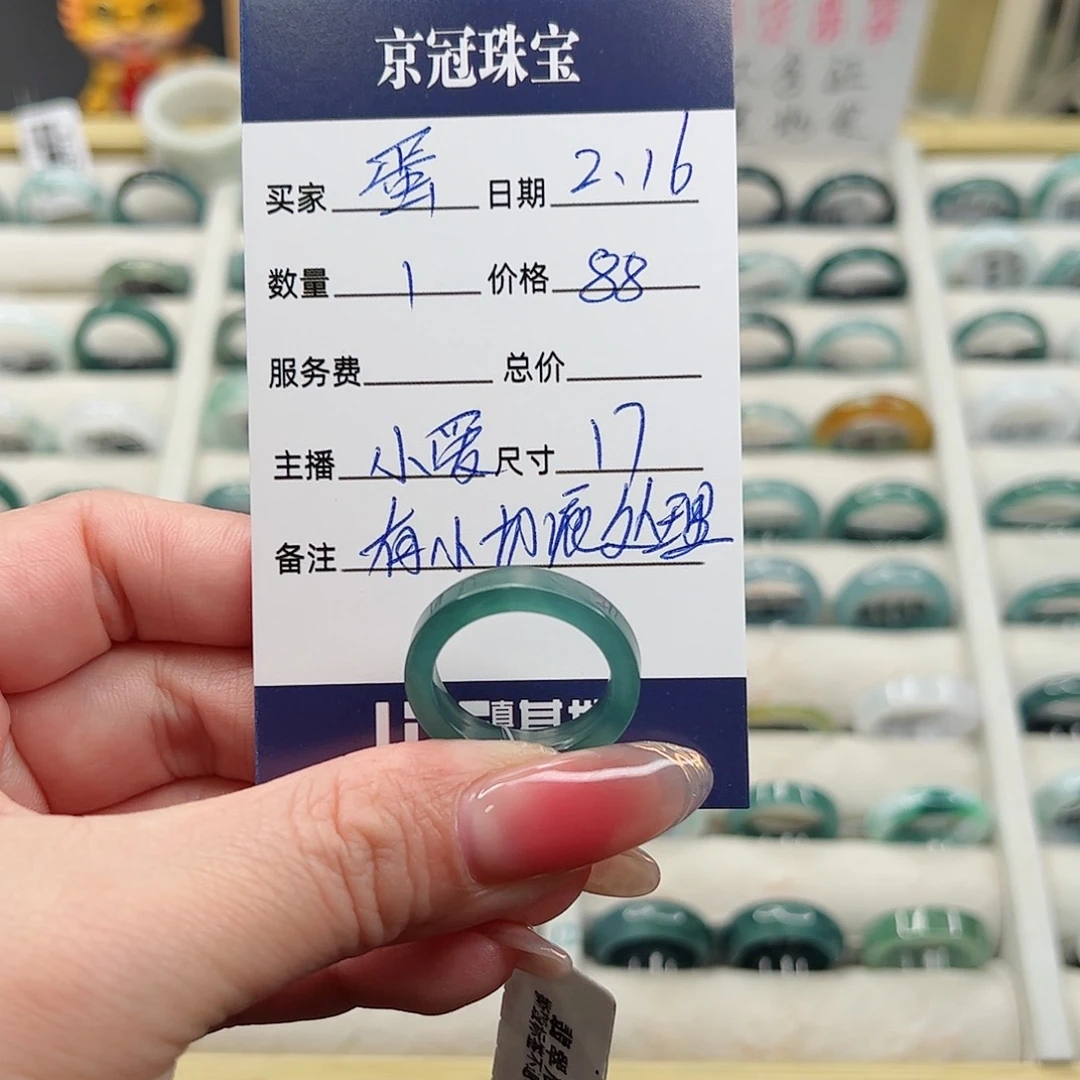 京冠珠宝
买家 蛋 日期 2、16
数量 1 价格 88
服务费 总价
主播 小爱 尺寸 17
备注 有小切痕处理